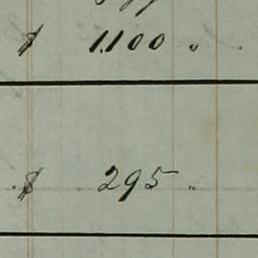 $ 1100 "
$ 295 "